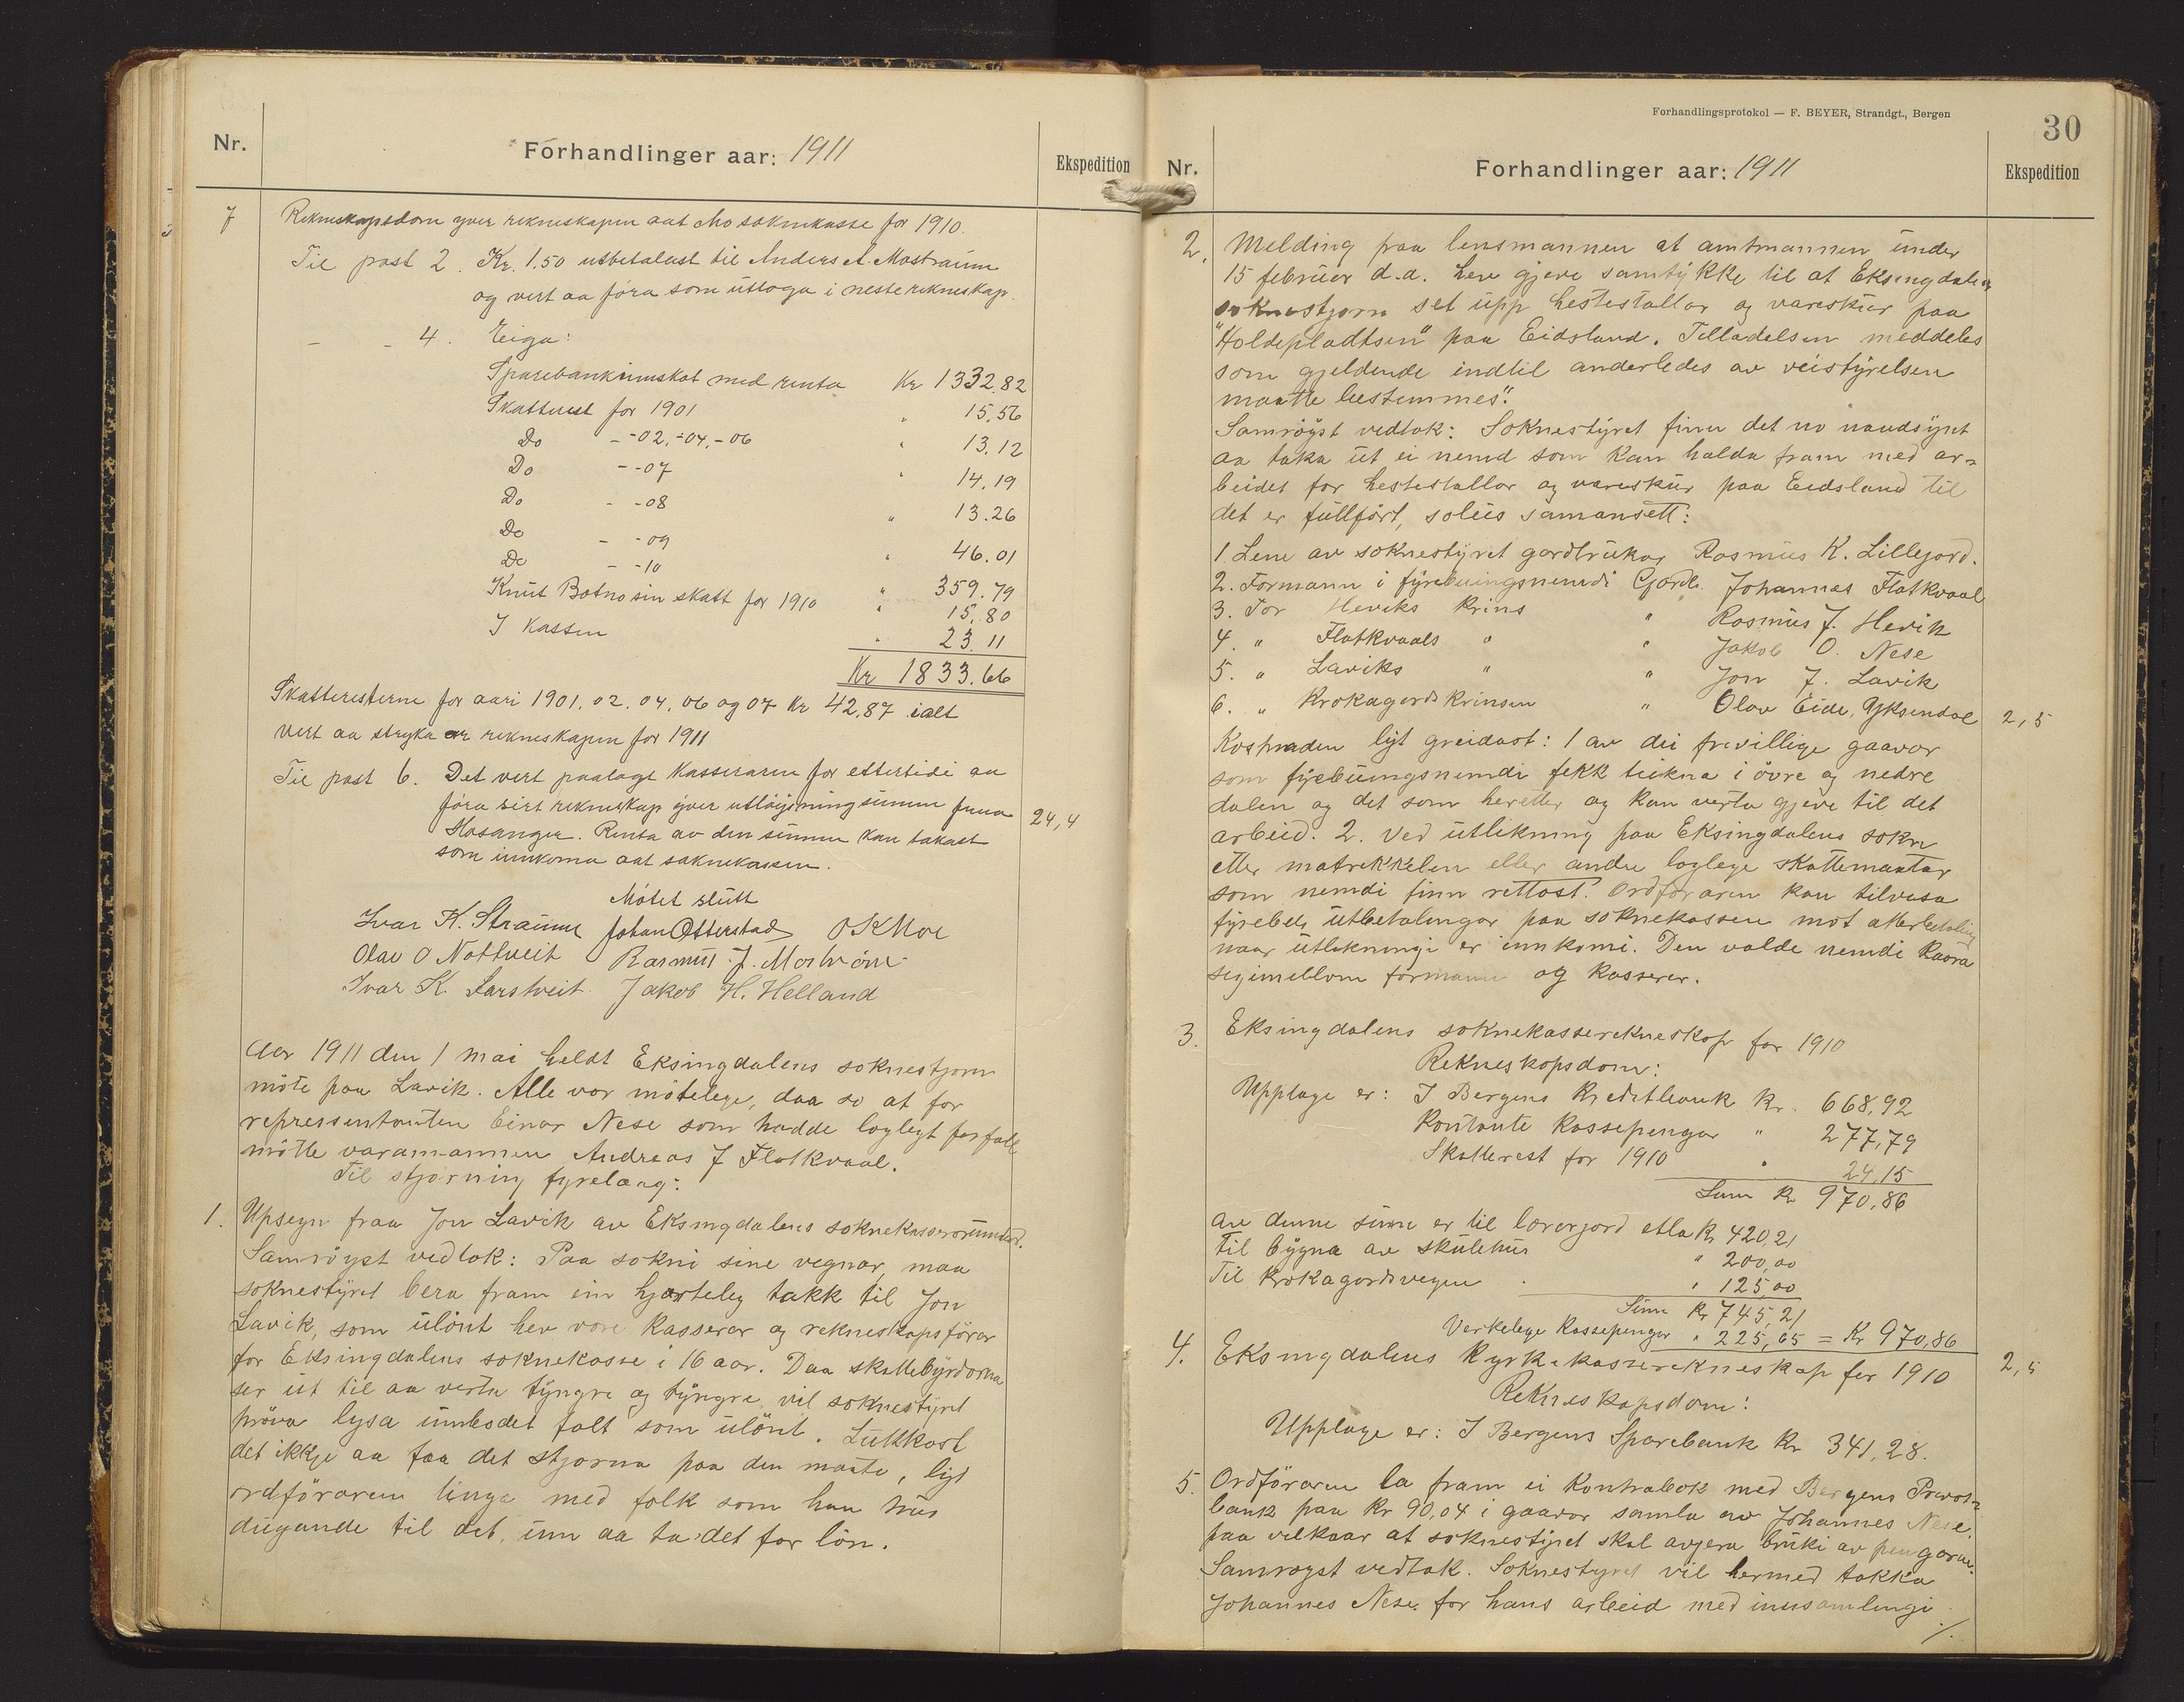 Nr.
Forhandlinger aar: 1911
Ekspedition
7
Rekneskapsdom yver rekneskapen aat Mo soknekasse for 1910.
Til post 2. Kr. 1.50 utbetalast til Anders A. Mostraum
og vert aa föra som utloga i neste rekneskap.
— - 4. Eiga:
Sparebankinnskot med renta Kr 1332.82
Skatterest for 1901 " 15.56
Do - -02, -04, -06 " 13.12
Do - -07 " 14.19
Do - -08 " 13.26
Do - -09 " 46.01
Do - -10 " 359.79
Knut Botno sin skatt for 1910 " 15.80
I Kassen " 23.11
Kr 1833.66
Skatteresterne for aari 1901. 02. 04. 06 og 07 Kr 42,87 ialt
vert aa stryka or rekneskapen for 1911
Til post 6. Det vert paalagt Kasseraren for ettertidi aa
föra sirt rekneskap yver utlöysningsumen fraa
Hosanger. Renta av den summen kan takast
som innkoma aat soknekassen.
24,4
Mötet slutt
Ivar K. Straume Johan Otterstad O K Moe
Olav O Nottveit Rasmus J. Mostraum
Ivar K. Farstveit Jakob H. Helland
Aar 1911 den 1 mai heldt Eksingdalens soknestjorn
möte paa Lavik. Alle var mötelege, daa so at for
repressentanten Einar Nese som hadde loglegt forfall
mötte varamannen Andreas J Flatkvaal.
Til stjorning fyrelaag:
1. Upsegn fraa Jon Lavik av Eksingdalens soknekasserarumbod.
Samröyst vedtok: Paa sokni sine vegnar, maa
soknestyret bera fram ein hjarteleg takk til Jon
Lavik, som ulönt hev vore Kasserar og rekneskapsförar
for Eksingdalens soknekasse i 16 aar. Daa skattebyrdorna
ser ut til aa verta tyngre og tyngre, vil soknestyret
pröva lysa umbodet falt som ulönt. Lukkast
det ikkje aa faa det stjorna paa den maate, lyt
ordföraren tinga med folk som han trur
dugande til det, um aa ta det for lön.
Forhandlingsprotokol — F. BEYER, Strandgt., Bergen
30
Nr.
Forhandlinger aar: 1911
Ekspedition
2. Melding fraa lensmannen at amtmannen under
15 februar d.a. hev gjeve samtykke til at Eksingdalen
soknestjorn set upp hestestallar og vareskur paa
"Holdepladtsen" paa Eidsland. Tilladelsen meddeles
som gjeldende indtil anderledes av veistyrelsen
maatte bestemmes".
Samröyst vedtok: Soknestyret finn det no naudsynt
aa taka ut ei nemd som kan halda fram med ar=
beidet for hestestallar og vareskur paa Eidsland til
det er fullfört, soleis samansett:
1. Lem av soknestyret gardbrukar Rasmus K. Lillejord.
2. Formann i fyrebuingsnemdi Gardb. Johannes Flatkvaal
3. For Heviks Krins " Rasmus J. Hevik
4. " Flatkvaals " " Jakob O. Nese
5. " Laviks " " Jon J. Lavik
6. " Krokagards Krinsen " Olav Eide, Yksendal
2,5
Kostnaden lyt greidast: 1 av dei frivillige gaavor
som fyrebuingsnemdi fekk teikna i övre og nedre
dalen og det som heretter og kan verta gjeve til det
arbeid. 2. Ved utlikning paa Eksingdalens sokn
etter matrikkelen eller andre loglege skattemaatar
som nemdi finn rettast. Ordföraren kan tilvisa
fyrebels utbetalingar paa soknekassen mot atterbetaling
naar utlikningi er innkomi. Den valde nemdi kaara
segimellom formann og kasserer.
3. Eksingdalens soknekasserekneskap for 1910
Rekneskapsdom:
Upplage er: I Bergens Kreditbank Kr. 668,92
Kontante Kassepengar " 277,79
Skatterest for 1910 " 24,15
Sum Kr 970,86
av denne sum er til lærarjord etla Kr 420,21
Til bygna av skulehus " 200,00
Til Krokagardsvegen " 125,00
Sum Kr 745,21
Verkelege Kassepengar " 225,65 = Kr 970,86
4. Eksingdalens Kyrkekasserekneskap for 1910
2,5
Rekneskapsdom:
Upplage er: I Bergens Sparebank Kr 341,28.
5. Ordföraren la fram ei Kontrabok med Bergens Privat=
bank paa Kr 90,04 i gaavor samla av Johannes Nese,
paa vilkaar at soknestyret skal avgjera bruki av pengarne.
Samröyst vedtok. Soknestyret vil hermed takka
Johannes Nese for hans arbeid med innsamlingi
./.